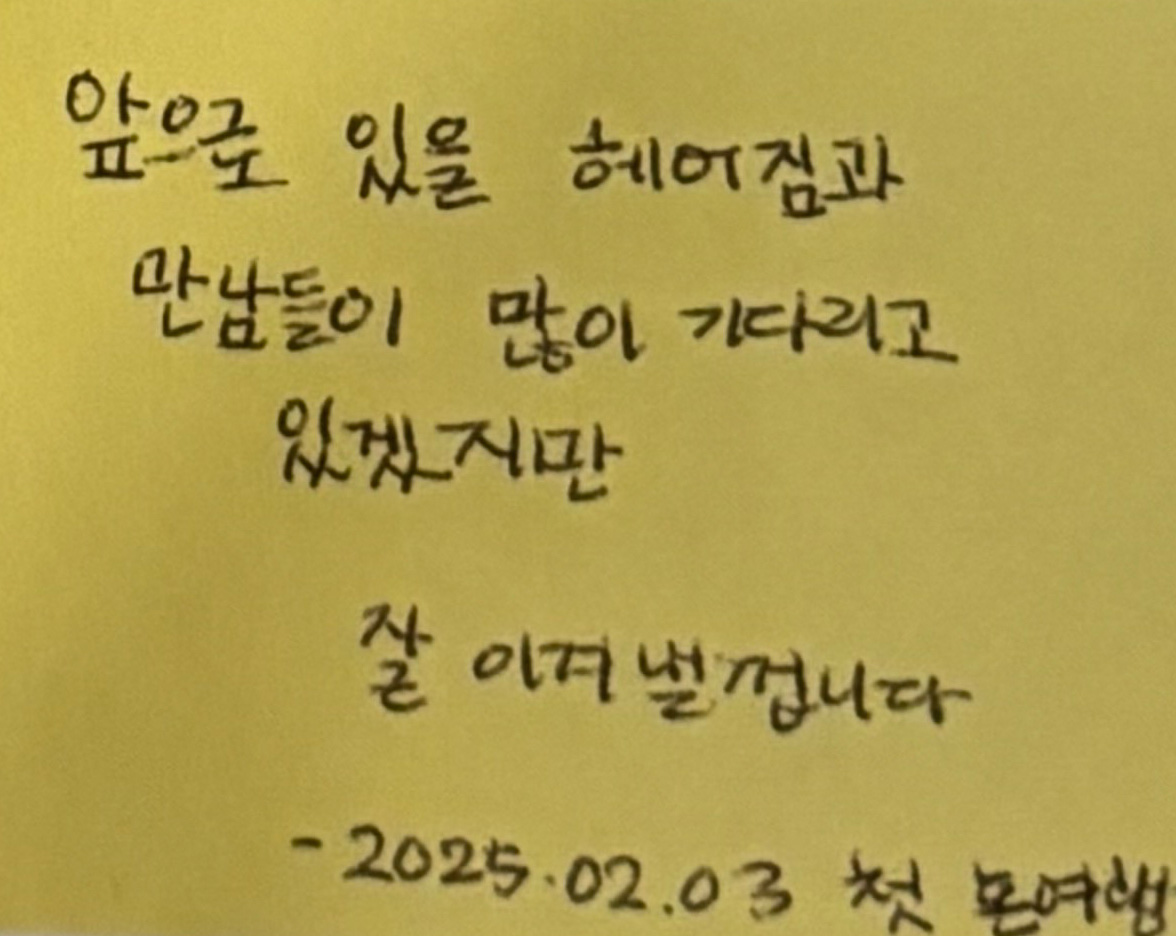 앞으로 있을 헤어짐과
만남들이 많이 기다리고
있겠지만
잘 이겨 낼껍니다
- 2025.02.03 첫